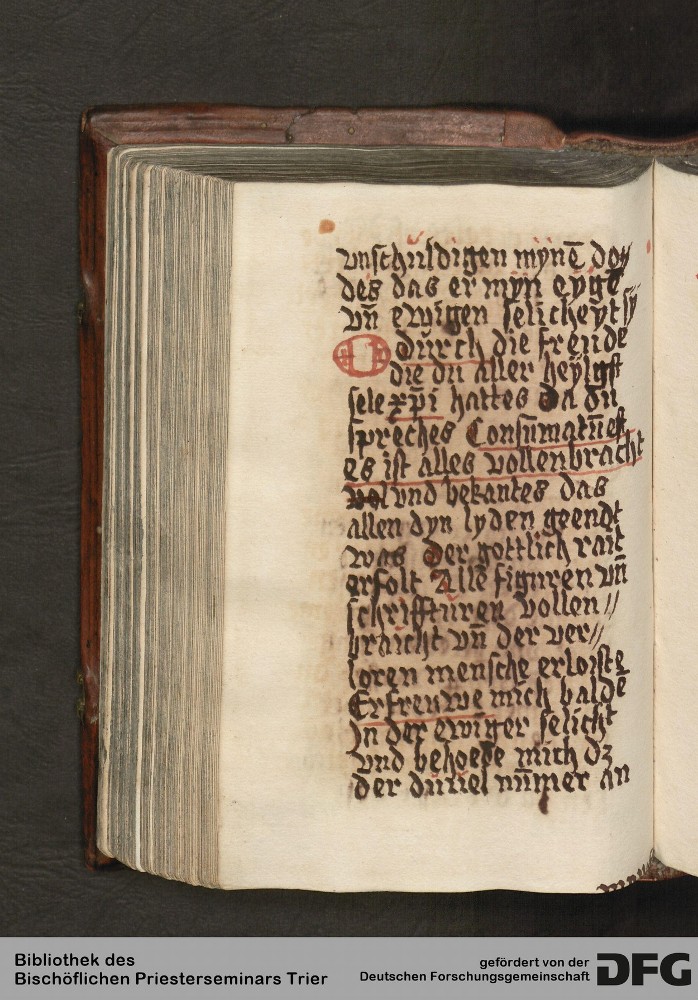 vnschuldigen mynē do//
des das er myn eyge
vn̄ ewigen selicheyt sy
O durch die freude
die du aller heylgst
sele xp̄i hattes Da du
spreches Consūmatūest
es ist alles vollenbracht
vnd bekantes das
allen dyn lyden geendt
was Der gottlich rait
erfolt Alle figuren vn̄
schrifften vollen//
braicht vn̄ der ver//
loren mensche erloiste
Erfreuwe mich baldē
In der ewiger selicht
vnd behoede mich dz
der duuel nūmer an
Bibliothek des
Bischöflichen Priesterseminars Trier
gefördert von der
Deutschen Forschungsgemeinschaft
DFG